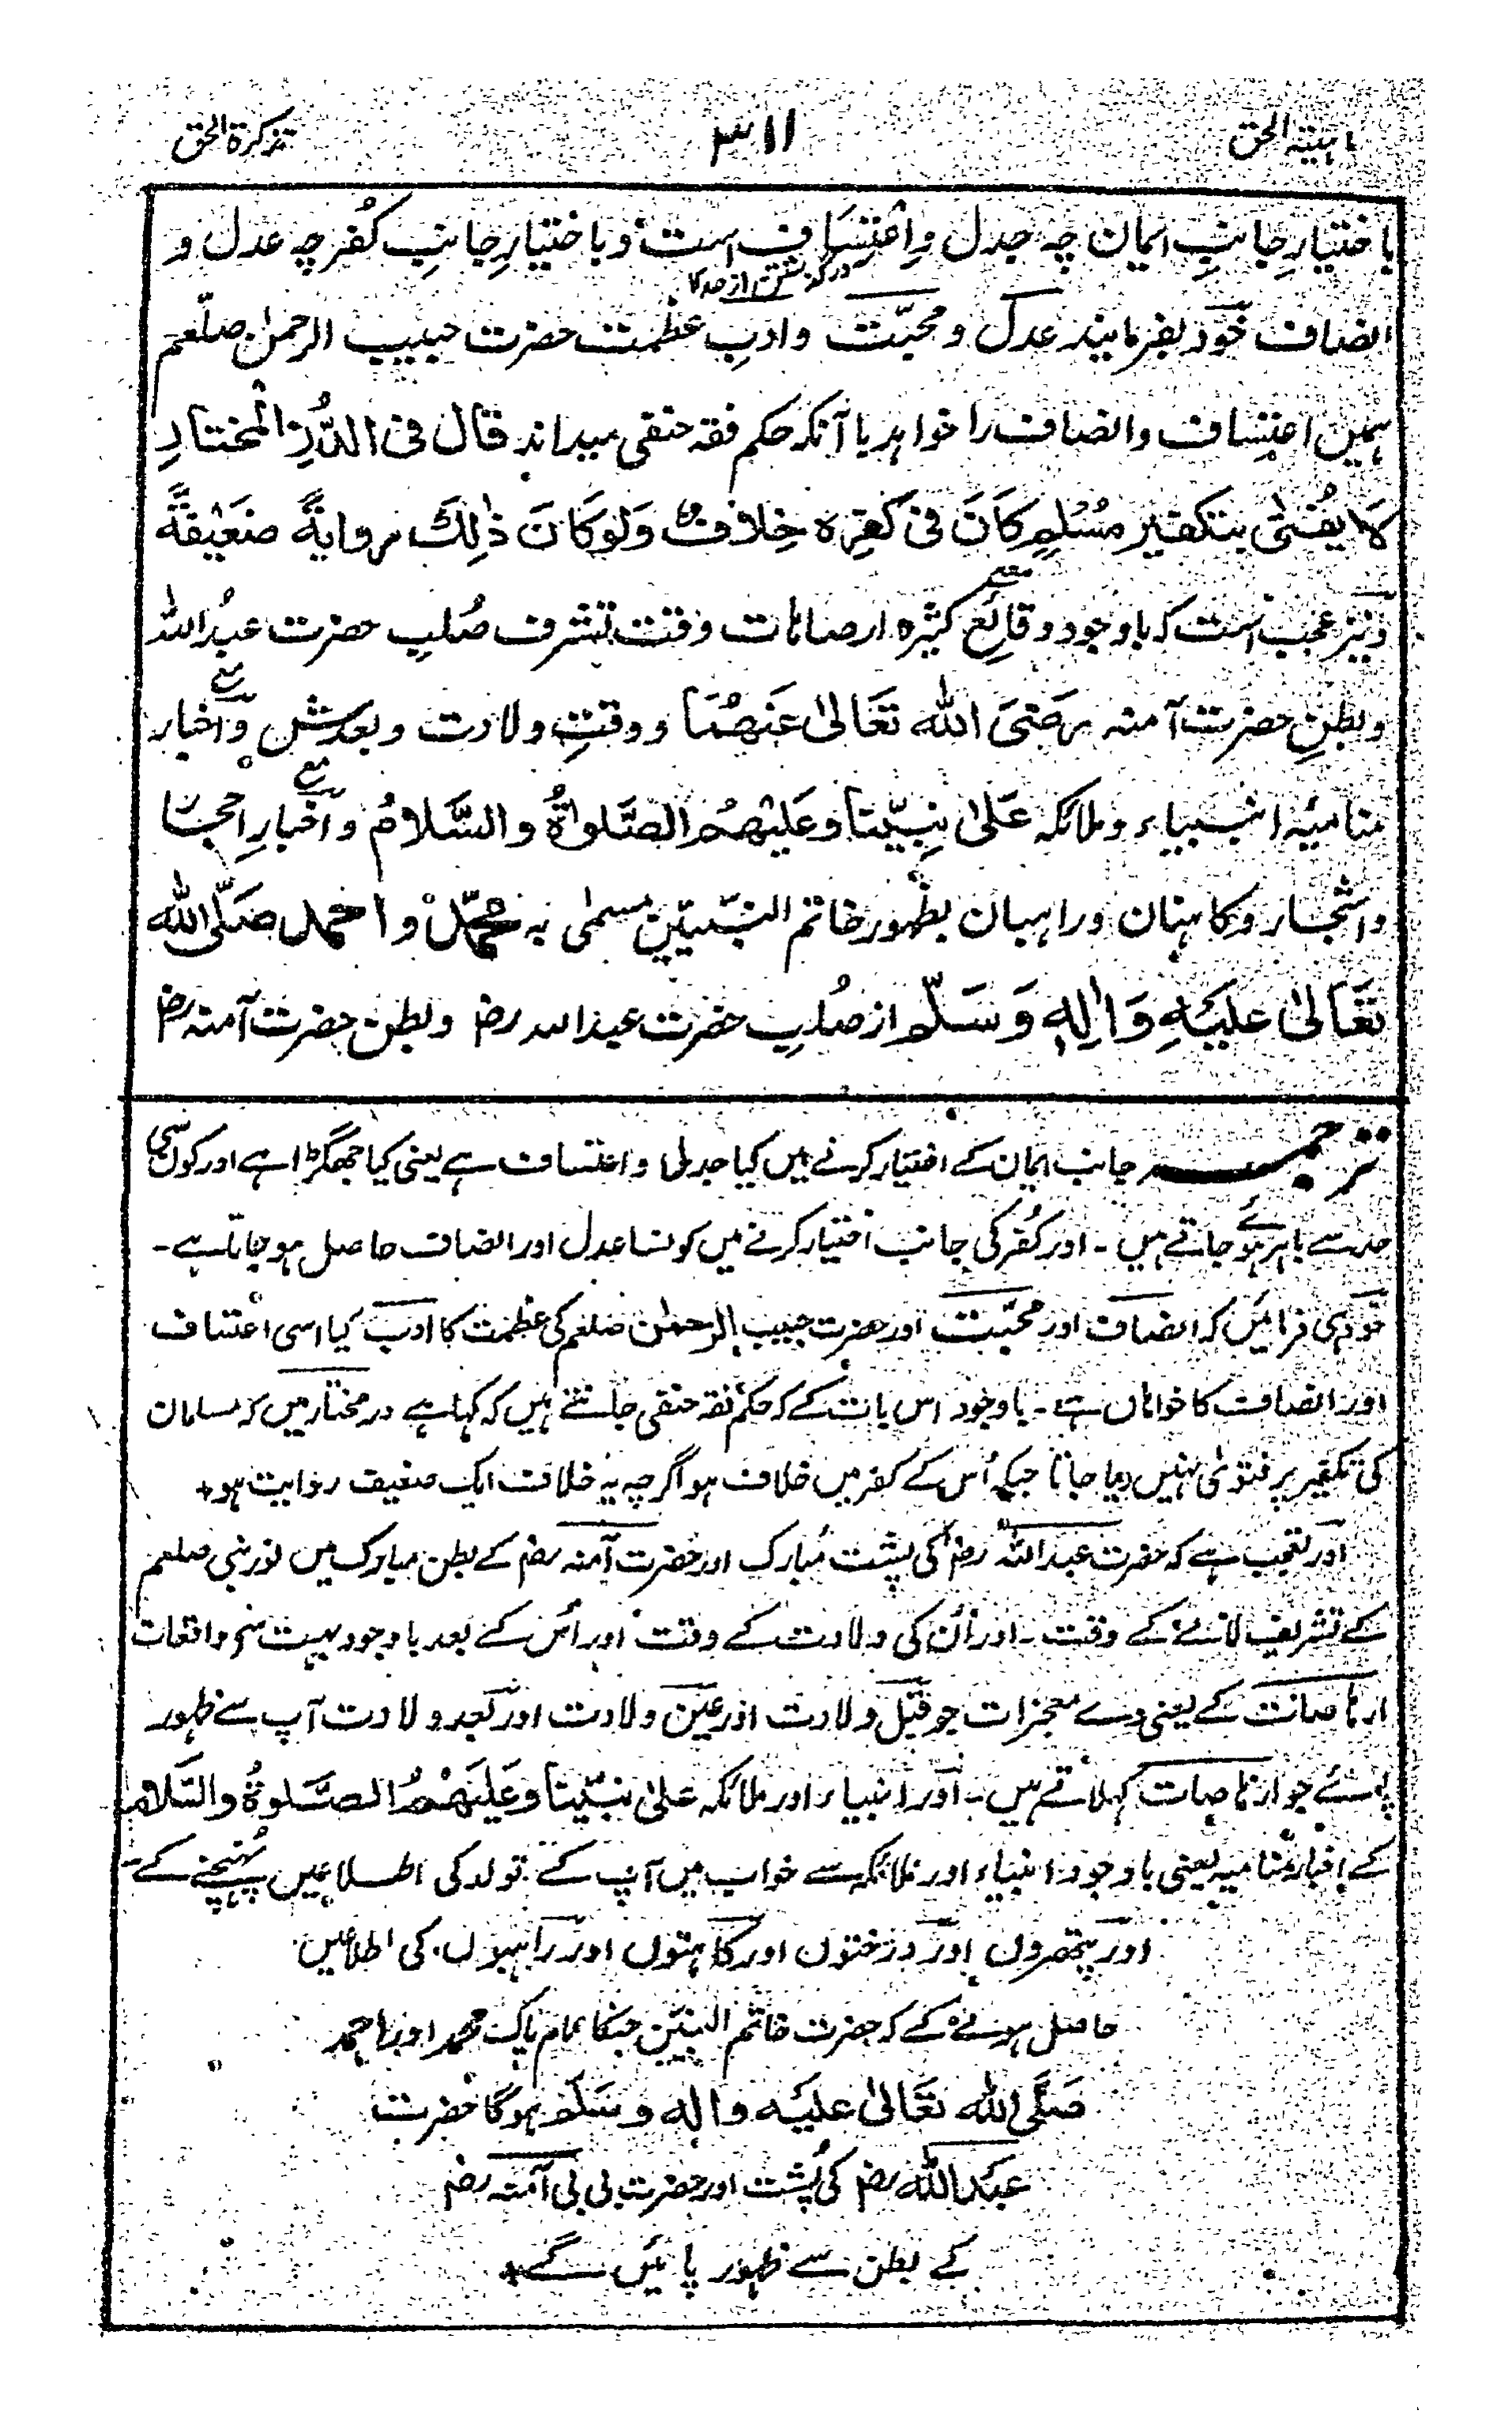 تذکرۃ الحق
۳۱۱
ہبیتہ الحق
باختیارِ جانبِ ایمان چہ جدل و اِعْتِسَاف است و باختیارِ جانبِ کُفر چہ عدل و
درگذشتن از حد
انصاف خود بفرمایند عدل و محبّت و ادبِ عظمت حضرت حبیب الرحمٰن صلّعم
ہمین اعتِساف و انصاف را خواہد با آنکہ حکم فقہ حنفی میداند قال فی الدُّرِّ الْمُختارِ
لَا یُفتیٰ بتکفیر مُسْلِمٍ کَانَ فی کُفرِہ خِلَافٌ وَلَو کَانَ ذٰلِکَ روایةً ضَعِیْفَةً
و نیز عجب است کہ باوجود وقائعِ کثیرہ ارہاصات وقت تشرف صُلبِ حضرت عبدُاللہ
و بطنِ حضرت آمنہ رَضِیَ اللہ تَعَالیٰ عَنہُمَا و وقتِ ولادت و بعدش و اخبار
منامیّہ انبیاء و ملائکہ عَلیٰ نبیّنا و عَلَیْہِمُ الصَّلوٰةُ وَالسَّلَامُ و اخبارِ احجار
و اشجار و کاہنان و راہبان بظہور خاتم النبّیّین مسمٰی بہ محمّد و احمد صَلَّی اللہ
تَعَالیٰ عَلَیْہِ وَاٰلِہٖ وَسَلَّم از صُلبِ حضرت عبداللہ رض و بطن حضرت آمنہ رض
ترجمہ جانب ایمان کے اختیار کرنے میں کیا جدل و اعتساف ہے یعنی کیا جھگڑا ہے اور کون سی
حد سے باہر ہوئے جاتے ہیں ۔ اور کُفر کی جانب اختیار کرنے میں کونسا عدل اور انصاف حاصل ہو جاتا ہے ۔
خود ہی فرمائیں کہ انصاف اور محبّت اور حضرت حبیب الرحمٰن صلعم کی عظمت کا ادب کیا اسی اعتساف
اور انصاف کا خواہاں ہے ۔ باوجود اس بات کے کہ حکم فقہ حنفی جانتے ہیں کہ کہا ہے درمختار میں کہ مسلمان
کی تکفیر پر فتویٰ نہیں دیا جاتا جبکہ اُس کے کفر میں خلاف ہو اگرچہ یہ خلاف ایک ضعیف روایت ہو +
اور تعجب ہے کہ حضرت عبداللہ رض کی پشت مُبارک اور حضرت آمنہ رض کے بطن مبارک میں نور نبی صلعم
کے تشریف لانے کے وقت ۔ اور اُن کی ولادت کے وقت اور اُس کے بعد باوجود بہت سے واقعات
ارہاصات کے یعنی وے معجزات جو قبل ولادت اور عین ولادت اور بعد ولادت آپ سے ظہور
پائے جو ارہاصات کہلاتے ہیں ۔ اور انبیاء اور ملائکہ علیٰ نبیّنا وعَلَیْہِمُ الصَّلوٰةُ وَالسَّلام
کے اخبار مُنامیہ یعنی باوجود انبیاء اور ملائکہ سے خواب میں آپ کے تولد کی اطلاعیں پُہنچنے کے ۔
اور پتھروں اور درختوں اور کاہنوں اور راہبوں کی اطلاعیں
حاصل ہونے کے کہ حضرت خاتم النبیّین جنکا نام پاک محمد اور احمد
صَلَّی اللہ تَعَالیٰ عَلَیْہ وَاٰلِہٖ وَسَلَّم ہوگا حضرت
عبدُاللہ رض کی پُشت اور حضرت بی بی آمنہ رض
کے بطن سے ظہور پائیں گے +